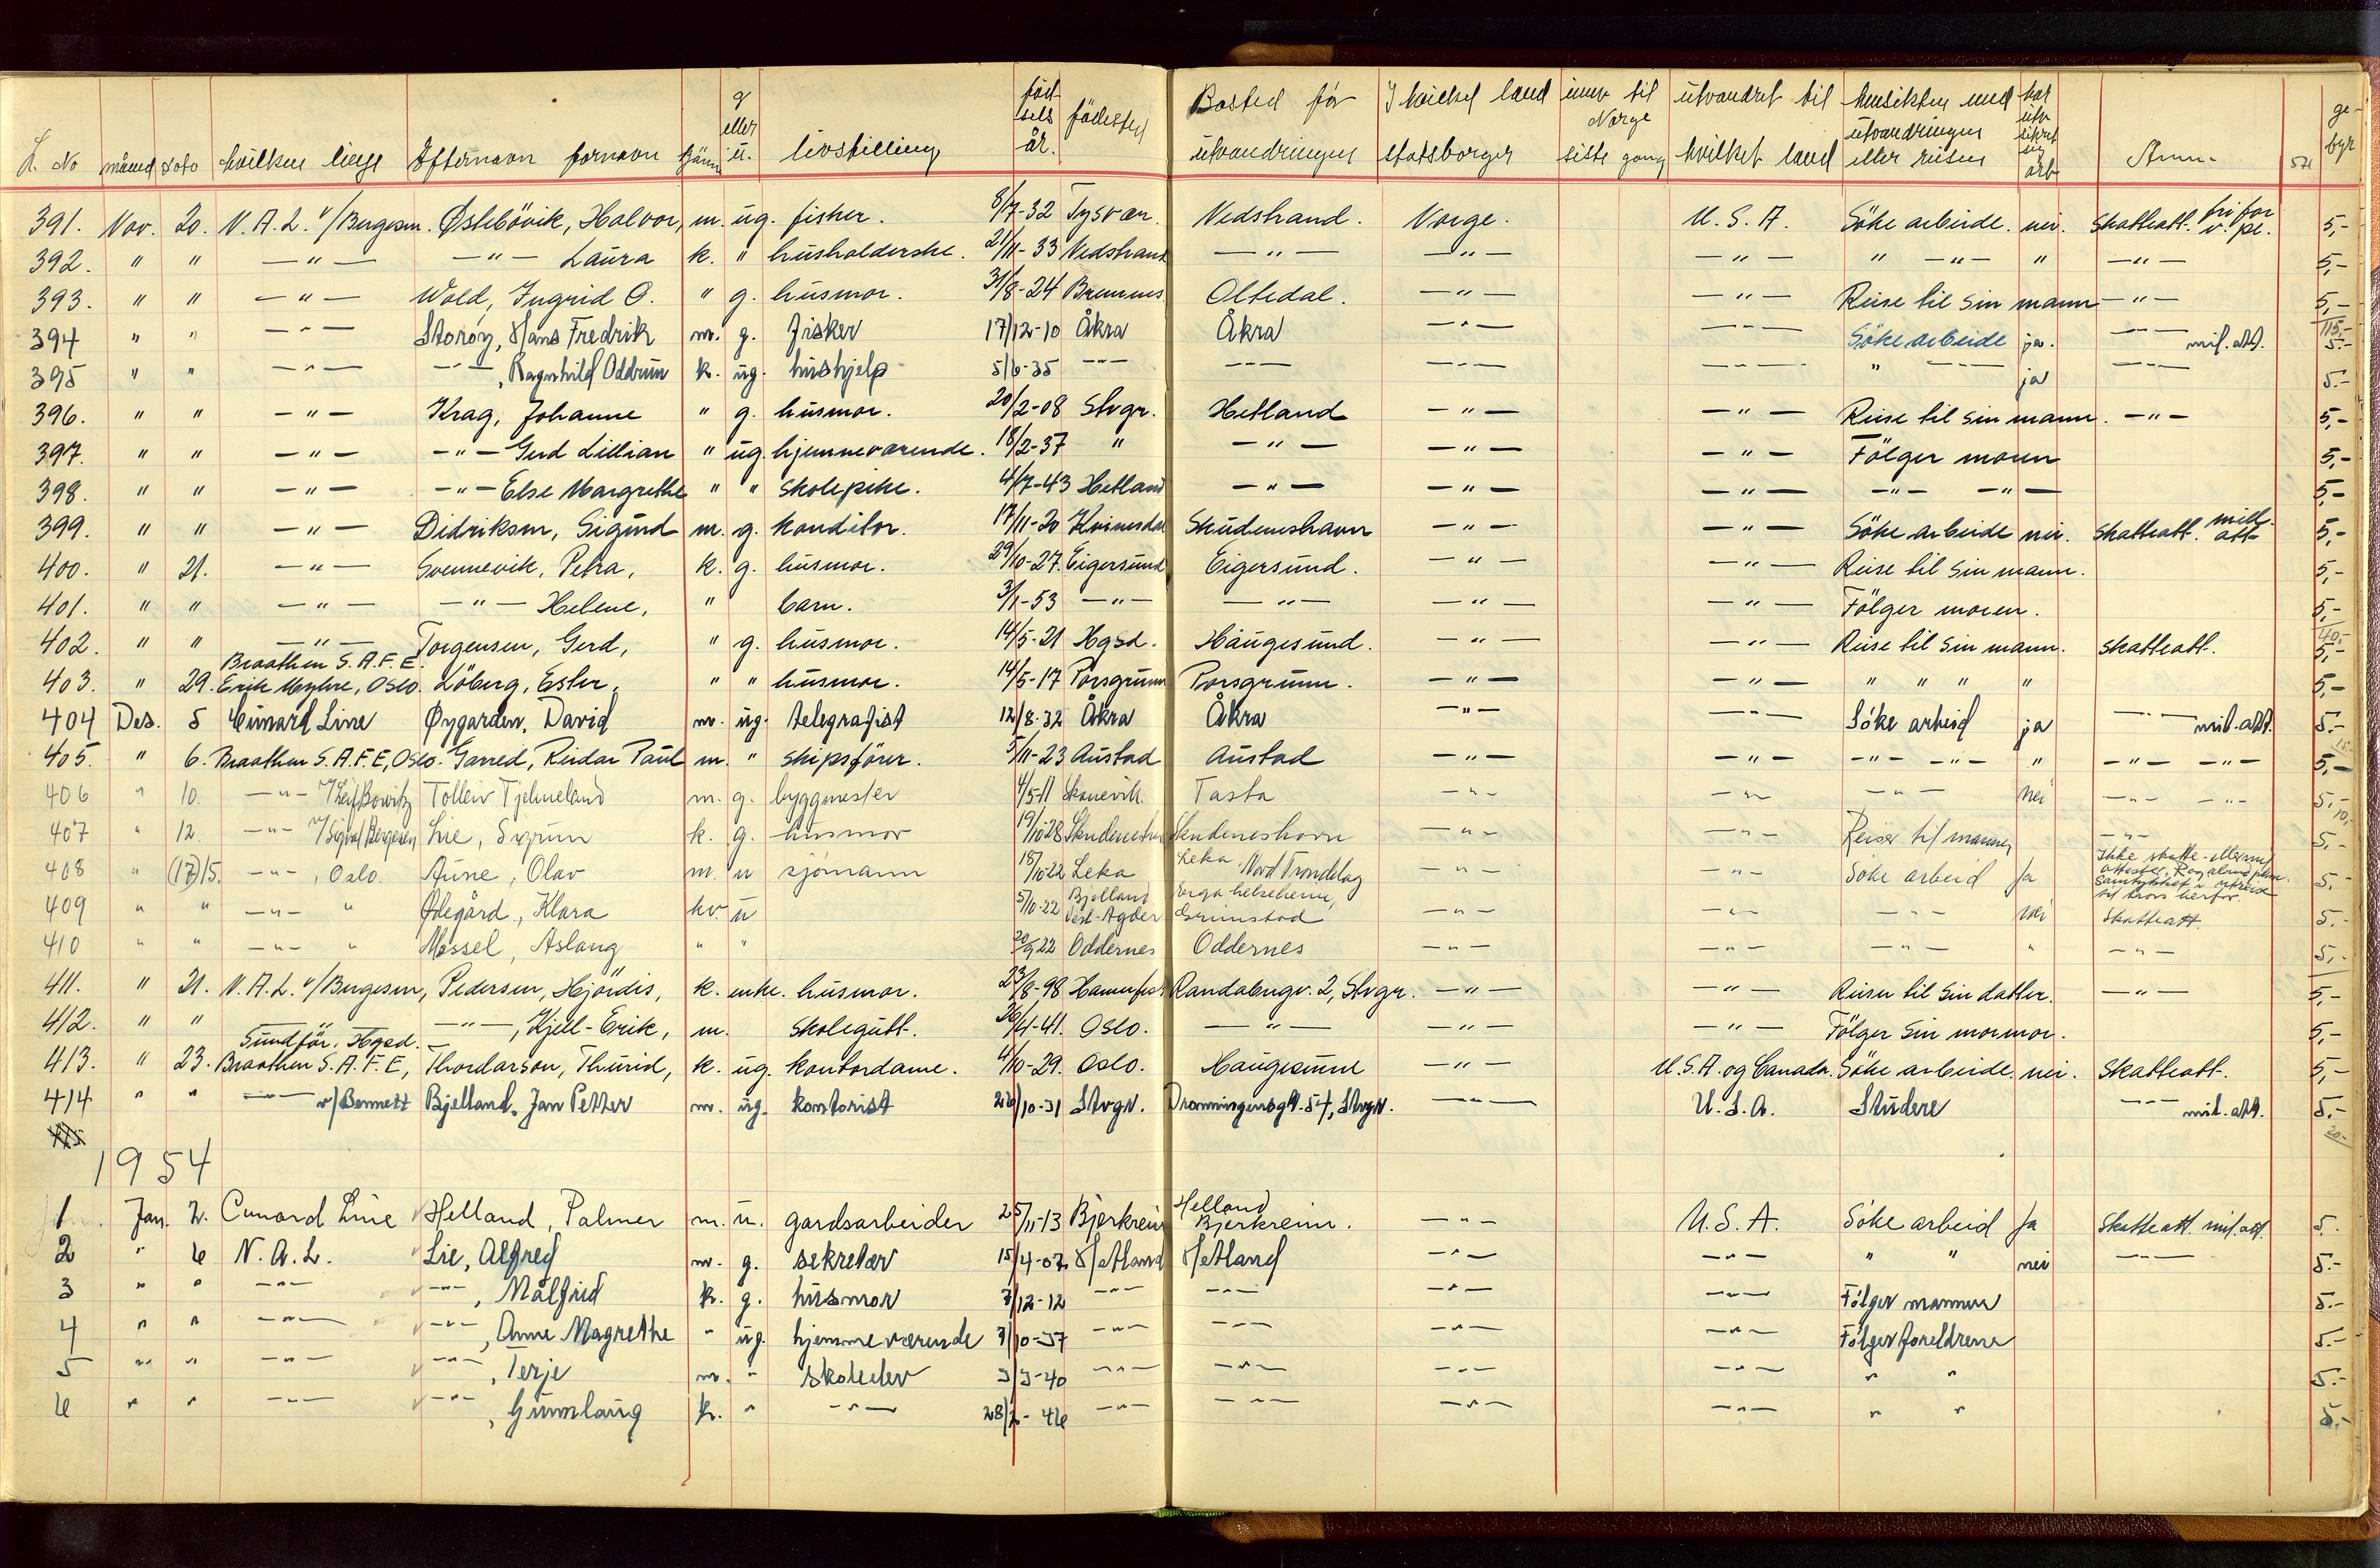 L. No måned dato hvilken linje Efternavn fornavn kjönn g eller u. livsstilling födselsår. födested Bosted för utvandringen I hvilket land statsborger innv til Norge siste gang utvandret til hvilket land hensikten med utvandringen eller reisen har utv. sikret seg arb Anm. gebyr
391. Nov. 20. N.A.L. v/Bergesen. Østebövik, Halvor, m. ug. fisker. 8/7-32 Tysvær. Nedstrand. Norge. U.S.A. Söke arbeide. nei. Skatteatt. fri for v. pl. 5,-
392. " " —"— —"— Laura k. " husholderske. 21/11-33 Nedstrand —"— —"— —"— " —"— " —"— 5,-
393. " " —"— Wold, Ingrid O. " g. husmor. 31/8-24 Bremnes Oltedal. —"— —"— Reise til sin mann —"— 5,-
115,-
394 " " —"— Storöy, Hans Fredrik m. g. fisker 17/12-10 Åkra Åkra —"— —"— Söke arbeide ja. —"— mil. att. 5.-
395 " " —"— —"—, Ragnhild Oddrun k. ug. hushjelp 5/6-35 —"— —"— —"— —"— " —"— ja —"— 5.-
396. " " —"— Krag, Johanne " g. husmor. 20/2-08 Stvgr. Hetland —"— —"— Reise til sin mann. —"— 5,-
397. " " —"— —"— Gerd Lillian " ug. hjemmeværende. 18/2-37 " —"— —"— —"— Fölger moren 5,-
398. " " —"— —"— Else Margrethe " " skolepike. 4/7-43 Hetland —"— —"— —"— —"— —"— 5,-
399. " " —"— Didriksen, Sigurd m. g. konditor. 17/11-20 Skudeneshavn —"— —"— Söke arbeide nei. Skatteatt. mil. att 5,-
400. " 21. —"— Svennevik, Petra, k. g. husmor. 29/10-27. Eigersund Eigersund. —"— —"— Reise til sin mann. 5,-
401. " " —"— —"— Helene, " barn. 3/1-53 —"— —"— —"— —"— Fölger moren. 5,-
40,-
402. " " —"— Torgensen, Gerd, " g. husmor. 14/5-21 Hgsd. Haugesund. —"— —"— Reise til sin mann. Skatteatt. 5,-
Braathen S.A.F.E.
403. " 29. Erik Myhre, Oslo. Löberg, Ester, " " husmor. 14/5-17 Porsgrunn Porsgrunn. —"— —"— " " " " 5,-
404 Des. 5 Cunard Line Øygarden, David m. ug. telegrafist 12/8-32 Åkra Åkra —"— —"— Söke arbeid ja —"— mil. att. 5.-
15.-
405. " 6. Braathen S.A.F.E, Oslo. Garred, Reidar Paul m. " skipsförer. 5/11-23 Austad Austad —"— —"— —"— —"— " —"— —"— 5,-
406 " 10. —"— Tolleiv Tjelmeland m. g. byggmester 4/5-11 Skånevik. Tasta —"— —"— —"— nei —"— —"— 5,-
10,-
407 " 12. —"— v/Sigval Bergesen Lie, Sigrun k. g. husmor 19/10-28 Skudeneshavn Skudeneshavn —"— —"— Reiser til mannen —"— 5,-
408 " (17)15. —"—, Oslo. Aune, Olav m. u sjömann 18/10-22 Leka Leka, Nord Trøndelag —"— —"— Söke arbeid Ja Ikke skatte- eller mil attester, 5,-
409 " " —"— " Ødegård, Klara kv. u 5/10-22 Bjelland Vest-Agder helseheim, Grimstad —"— —"— —"— nei Skatteatt. 5.-
410 " " —"— " Mossel, Aslaug " " 20/9 22 Oddernes Oddernes —"— —"— —"— " —"— 5,-
411. " 21. N.A.L. v/Bergesen, Pedersen, Hjördis, k. enke. husmor. 23/8-98 Hamerfest Randabergv. 2, Stvgr. —"— —"— Reisen til sin datter. —"— 5,-
412. " " —"— —"—, Kjell-Erik, m. skolegutt. 26/4-41. Oslo. —"— —"— —"— Fölger sin mormor. 5,-
Sundför, Hgsd.
413. " 23. Braathen S.A.F.E, Thordarson, Thurid, k. ug. kontordame. 4/10-29. Oslo. Haugesund —"— U.S.A. og Canada. Söke arbeide. nei. Skatteatt. 5,-
414 " " —"— v/Bennett Bjelland, Jan Petter m. ug. kontorist 26/10-31 Stvgr. Dronningensgt. 54, Stvgr. —"— U.S.A. Studere —"— mil. att. 5.-
20.-
1954
1 Jan. 2. Cunard Line Helland, Palmer m. u. gardsarbeider 25/11-13 Bjerkreim Helland Bjerkreim. —"— U.S.A. Söke arbeid Ja Skatteatt. mil. att. 5.
2 " 6 N.A.L. Lie, Alfred m. g. sekretær 15/4-07 Hetland Hetland —"— —"— " " nei —"— 5.-
3 " " —"— —"—, Målfrid k. g. husmor 7/12-12 —"— —"— —"— —"— Fölger mannen 5.-
4 " " —"— —"—, Anne Magrethe " ug. hjemmeværende 7/10-37 —"— —"— —"— —"— Fölger foreldrene 5.-
5 " " —"— —"—, Terje m. " Skoleelev 3/3-40 —"— —"— —"— —"— " " 5.-
6 " " —"— —"—, Gunnlaug k. " —"— 28/2-46 —"— —"— —"— —"— " " 5.-